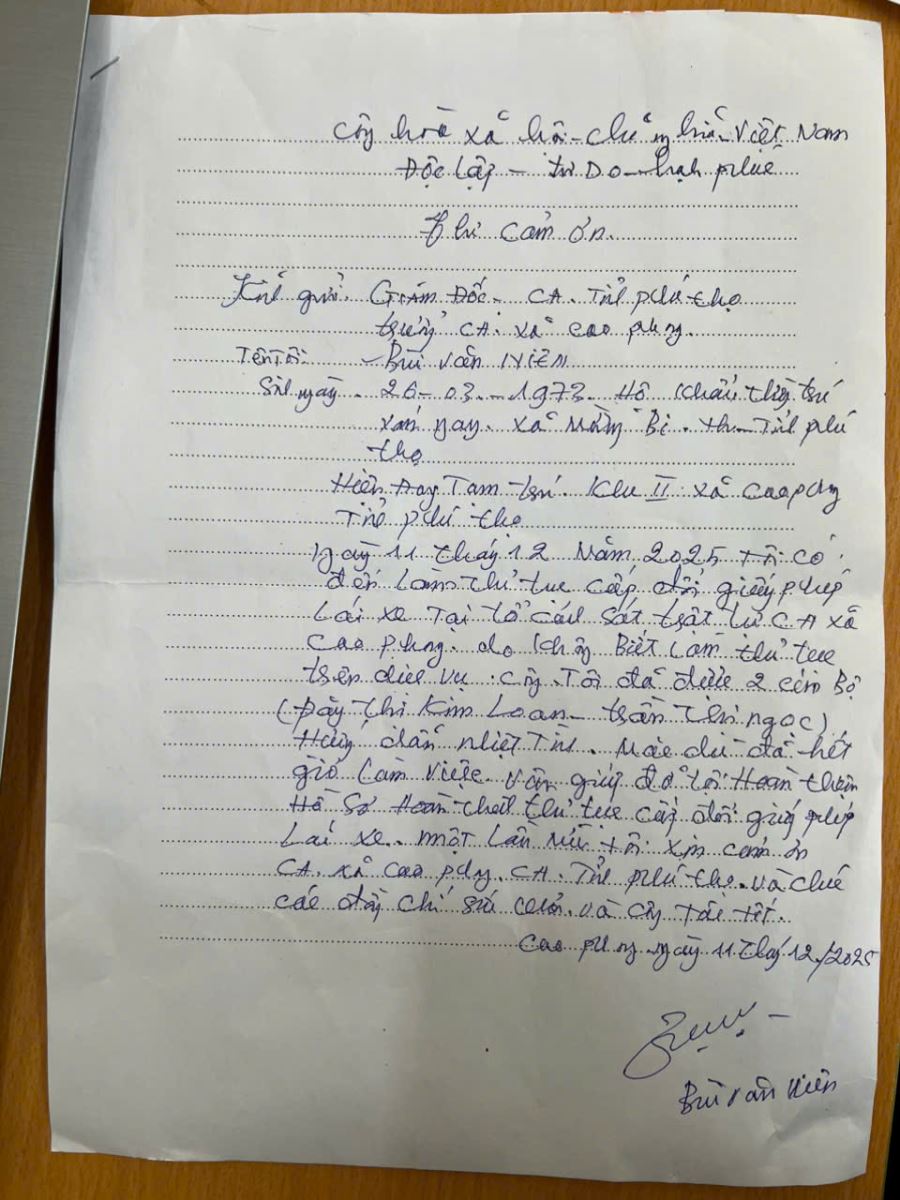 Cộng hoà xã hội chủ nghĩa Việt Nam
Độc Lập - tự Do - hạnh phúc
Thư cảm ơn.
Kính gửi. Giám Đốc - CA. Tỉnh phú thọ
trưởng CA. xã cao phong.
Tên Tôi: - Bùi văn
Sinh ngày. 26 - 03 - 1973. Hộ khẩu thường trú
xóm xã Mường Bi. Tỉnh phú
thọ
Hiện Đang Tạm trú. Khu II xã Cao phong
Tỉnh phú thọ
Ngày 11 tháng 12 Năm 2025 Tôi có
đến Làm thủ tục cấp đổi giấy phép
Lái xe Tại tổ cảnh sát trật tự CA xã
Cao phong. do không Biết Làm thủ tục
trên dịch vụ công. Tôi đã được 2 cán Bộ
thị Kim Loan - trần thị ngọc)
Hướng dẫn nhiệt Tình. Mặc dù đã hết
giờ Làm việc. vẫn giúp đỡ tôi Hoàn thiện
Hồ Sơ Hoàn thành thủ tục cấp đổi giấy phép
Lái xe. một Lần nữa tôi xin cảm ơn
CA. xã cao phong. CA. Tỉnh phú thọ. và chúc
các đồng chí sức khoẻ. và công tác tốt.
Cao phong ngày 11 tháng 12/2025
Bùi văn